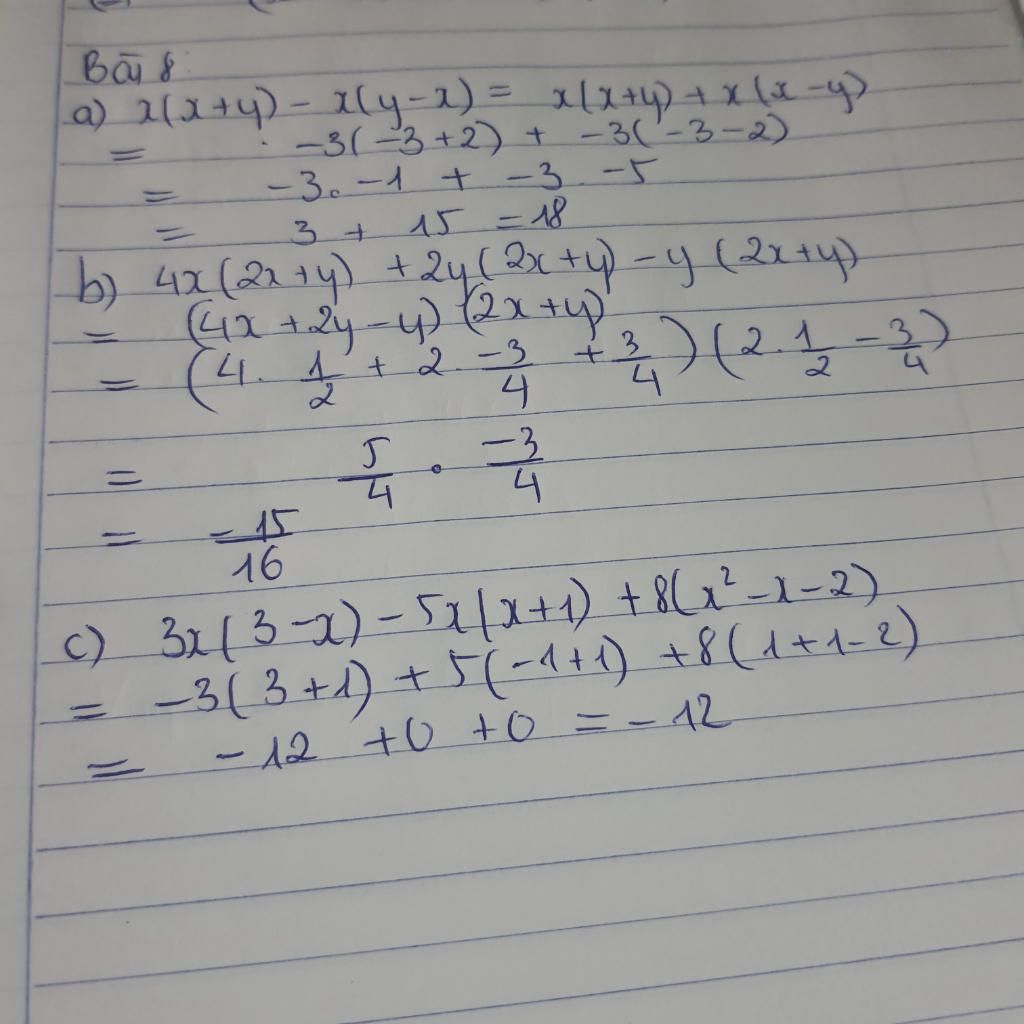 Bài 8:
a) x(x+y) - x(y-x) = x(x+y) + x(x-y)
= -3(-3+2) + -3(-3-2)
= -3. -1 + -3. -5
= 3 + 15 = 18
b) 4x(2x+y) + 2y(2x+y) - y(2x+y)
= (4x+2y-y)(2x+y)
= (4. 1/2 + 2. -3/4 + 3/4)(2. 1/2 - 3/4)
= 5/4 . -3/4
= -15/16
c) 3x(3-x) - 5x(x+1) + 8(x²-x-2)
= -3(3+1) + 5(-1+1) + 8(1+1-2)
= -12 + 0 + 0 = -12